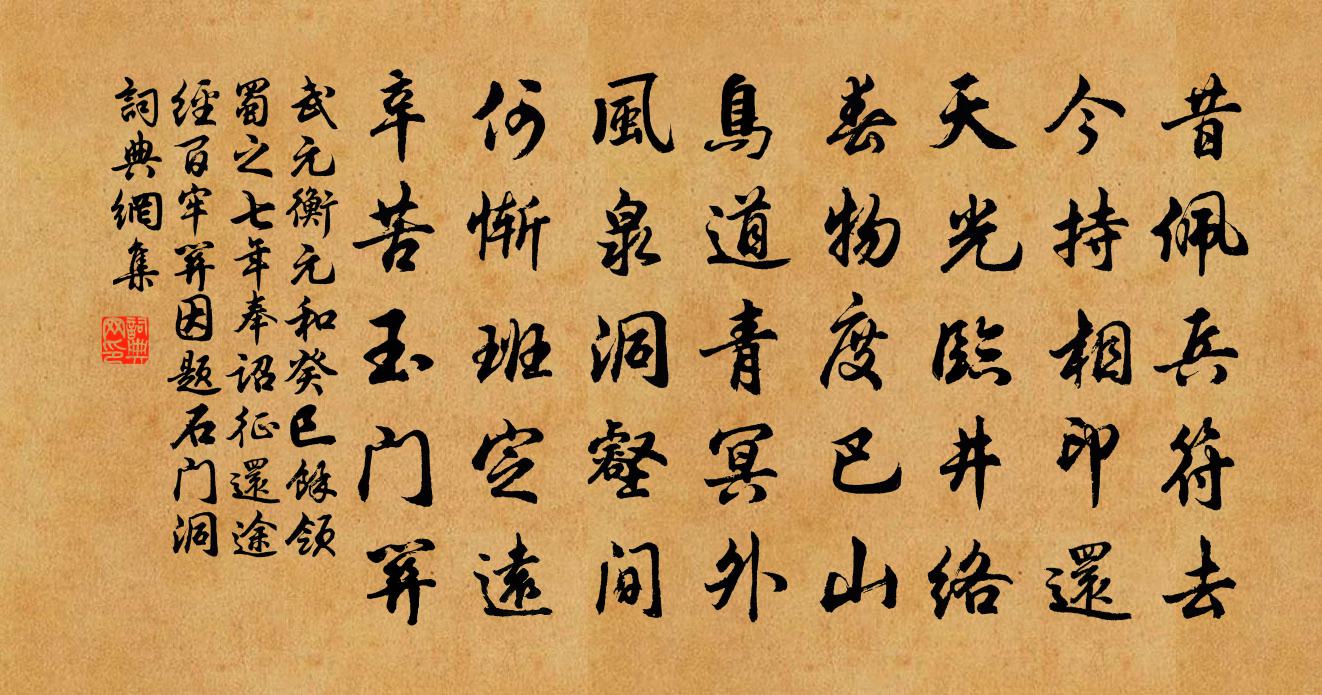 昔佩兵符去
今持相印還
天光臨井络
春物度巴山
鳥道青冥外
風泉洞壑間
何慚班定遠
辛苦玉门関
武元衡元和癸巳餘領
蜀之七年奉诏征還途
經百牢関因题石门洞
詞典網集
詞典网印